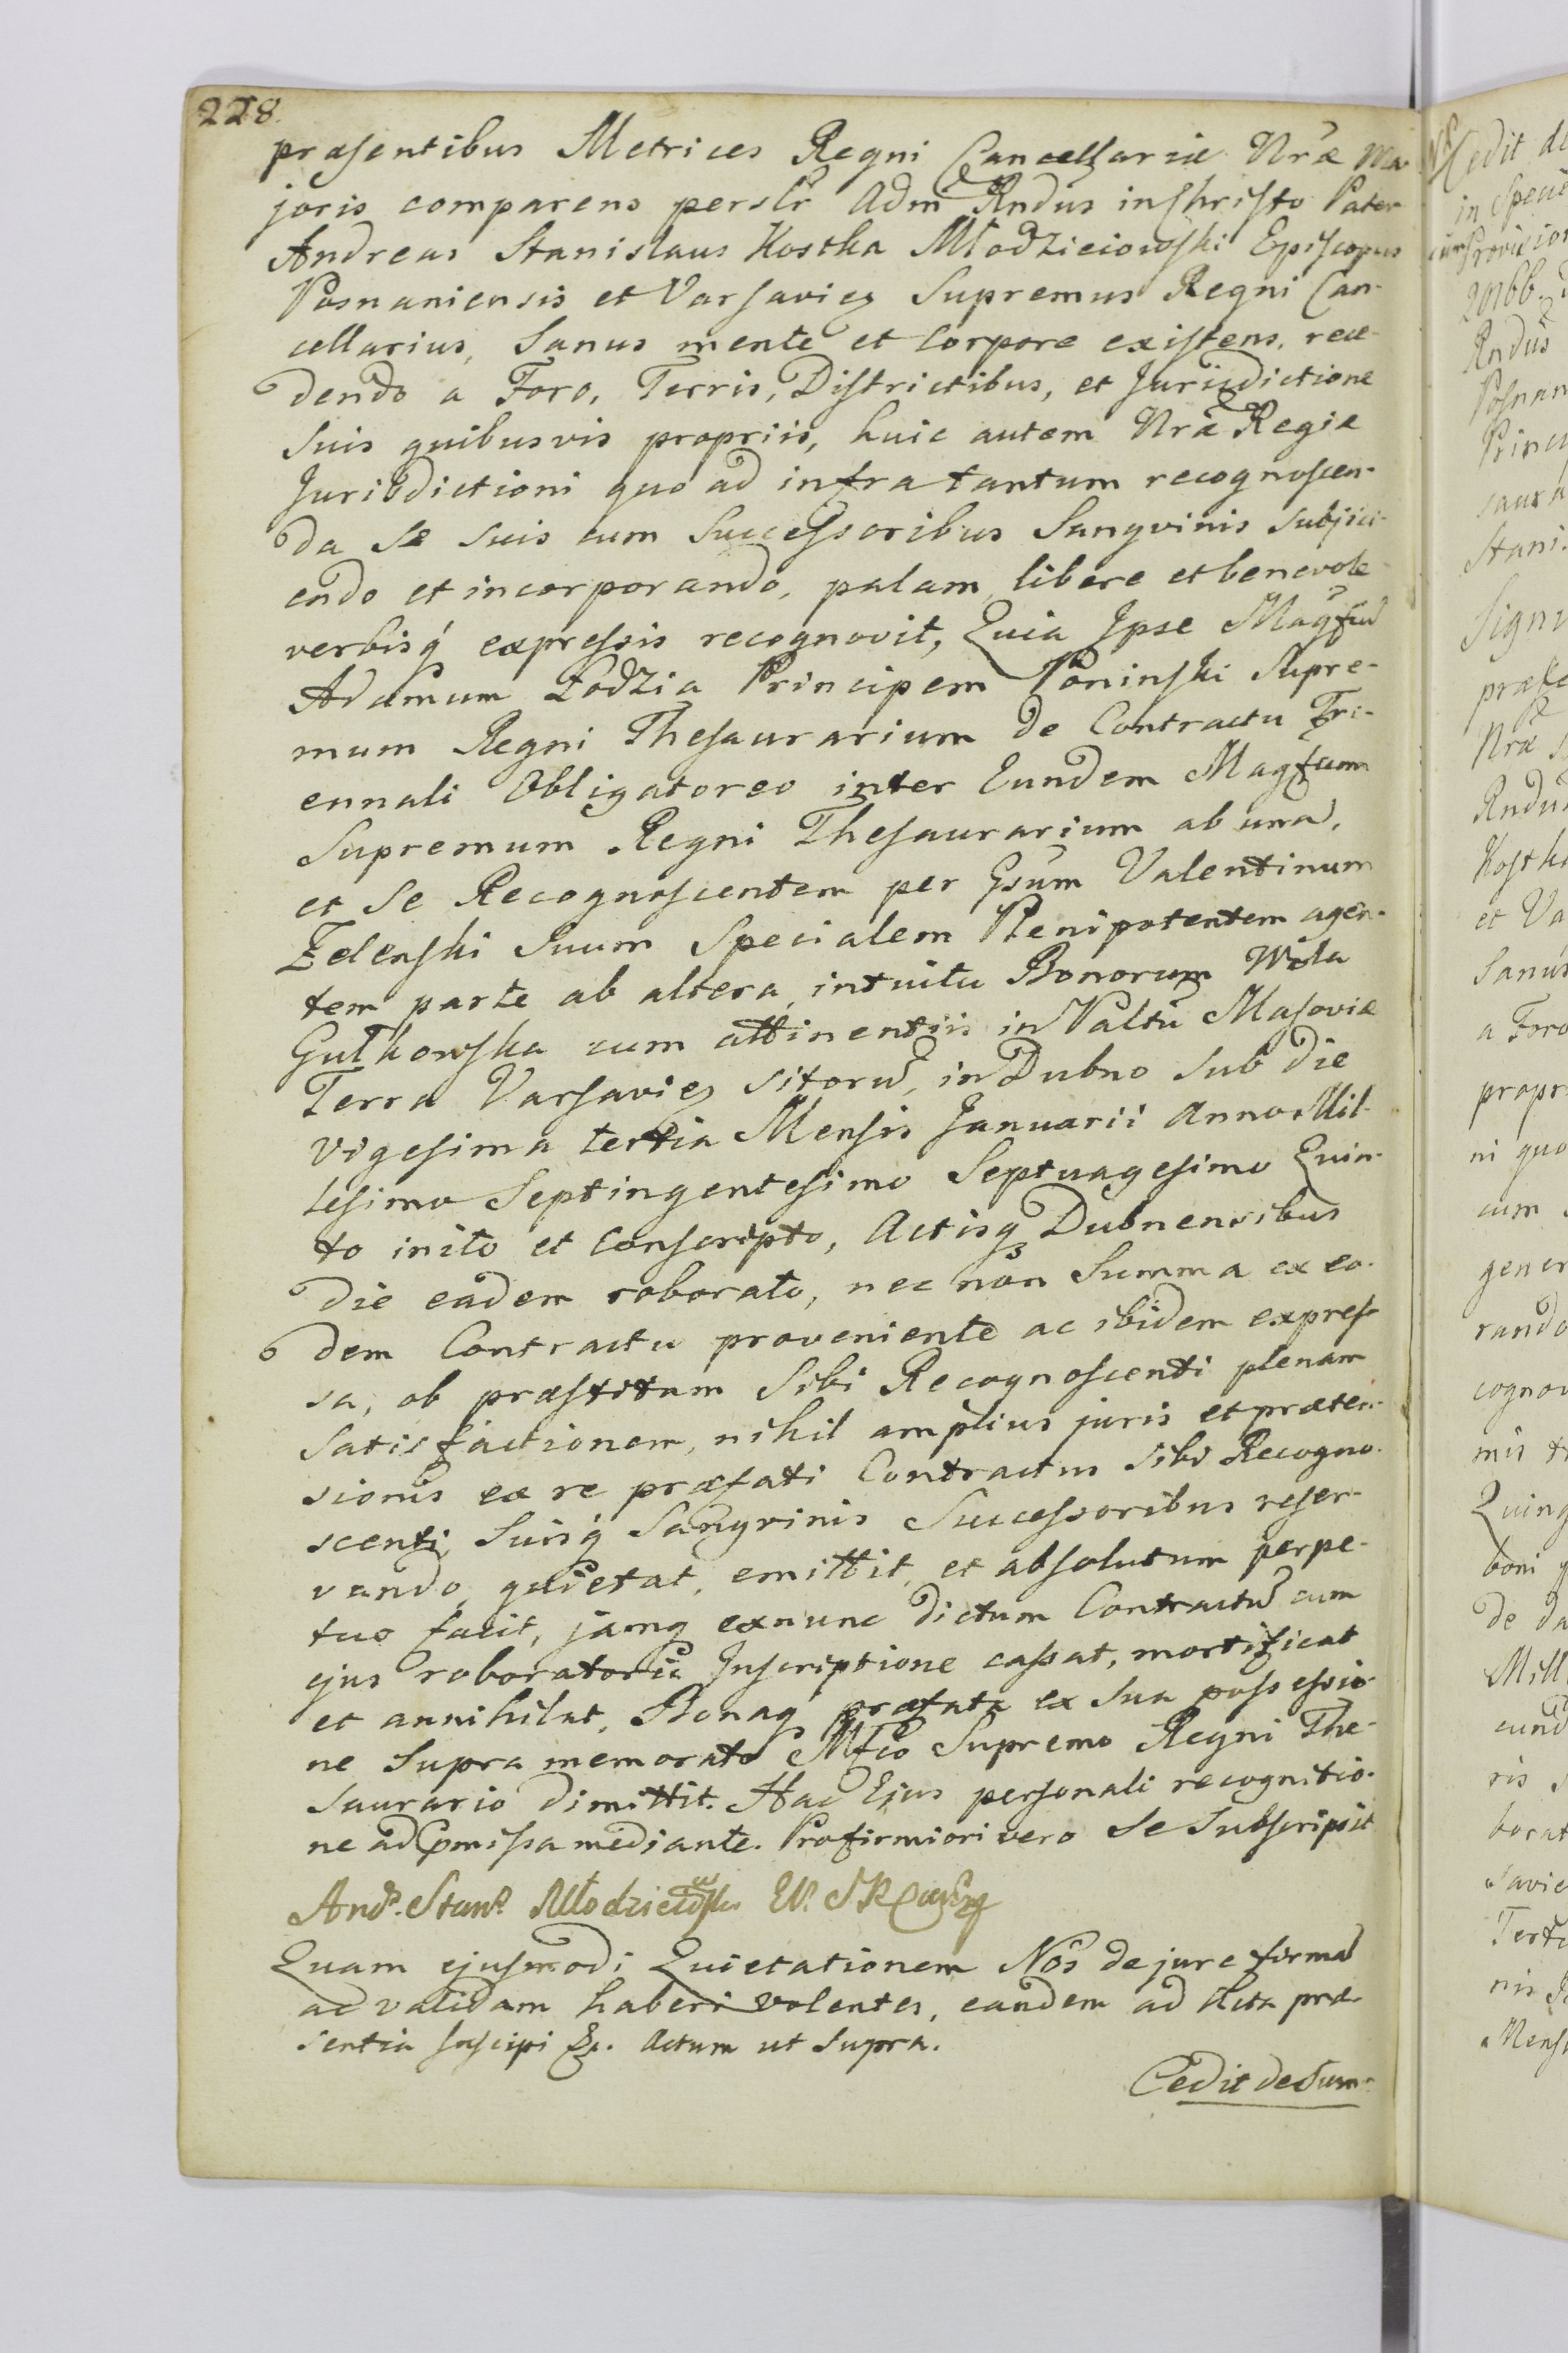 228.
præsentibus Metrices Regni Cancellariæ Nræ Ma-
joris comparens perslr Adm Rndus in Christo Pater
Andreas Stanislaus Kostka Młodzieiowski Episcopus
Posnaniensis et Varsavieñ Supremus Regni Can-
cellarius, Sanus mente et Corpore existens, rece-
dendo a Foro, Terris, Districtibus, et Jurisdictione
suis quibusvis propriis, huic autem Nræ Regiæ
Jurisdictioni quo ad infra tantum recognoscen-
da se suis cum Successoribus Sangvinis subjici-
endo et incorporando, palam, libere et benevole
verbisq́ expressis recognovit, Quia Ipse Magfcũ
Adamum Łodzia Principem Poninski Supre-
mum Regni Thesaurarium de Contractu Tri-
ennali Obligatoreo inter Eundem Magfcum
Supremum Regni Thesaurarium ab una,
et Se Recognoscentem per Gsum Valentinum
Zelenski Suum Specialem Plenipotentem agen-
tem parte ab altera, intuitu Bonorum Wola
Gułkowska cum attinentiis in Paltũ Masoviæ
Terra Varsavieñ sitorũ, in Dubno sub die
vigesima tertia Mensis Januarii Anno Mil-
lesimo Septingentesimo Septuagesimo Quin-
to inito et Conscripto, Actisq́ Dubnensibus
die eadem roborato, nec non Summa ex eo-
dem Contractu proveniente ac ibidem expres-
sa, ob præstitam Sibi Recognoscenti plenam
Satisfactionem, nihil amplius juris et præten-
sionis ex re præfati Contractus sibi Recogno-
scenti, Suisq́ Sangvinis Successoribus reser-
vando, quietat, emittit, et absolutum perpe-
tuo facit, jamq́ exnunc dictum Contractũ cum
ejus roboratoria Inscriptione cassat, mortificat
et annihilat, Bonaq́ præfata ex sua possessio-
ne supra memorato Mfco Supremo Regni The-
saurario dimittit. Hac Ejus personali recognitio-
ne ad p̃missa mediante. Pro firmiori vero se subscripsit
Andr. Stanr. Młodzieiowski EP.
Quam ejusmodi Quietationem Nos de jure firmã
ac validam haberi volentes, eandem ad Acta præ-
sentia suscipi &c. Actum ut supra.
Cedit de Sum-